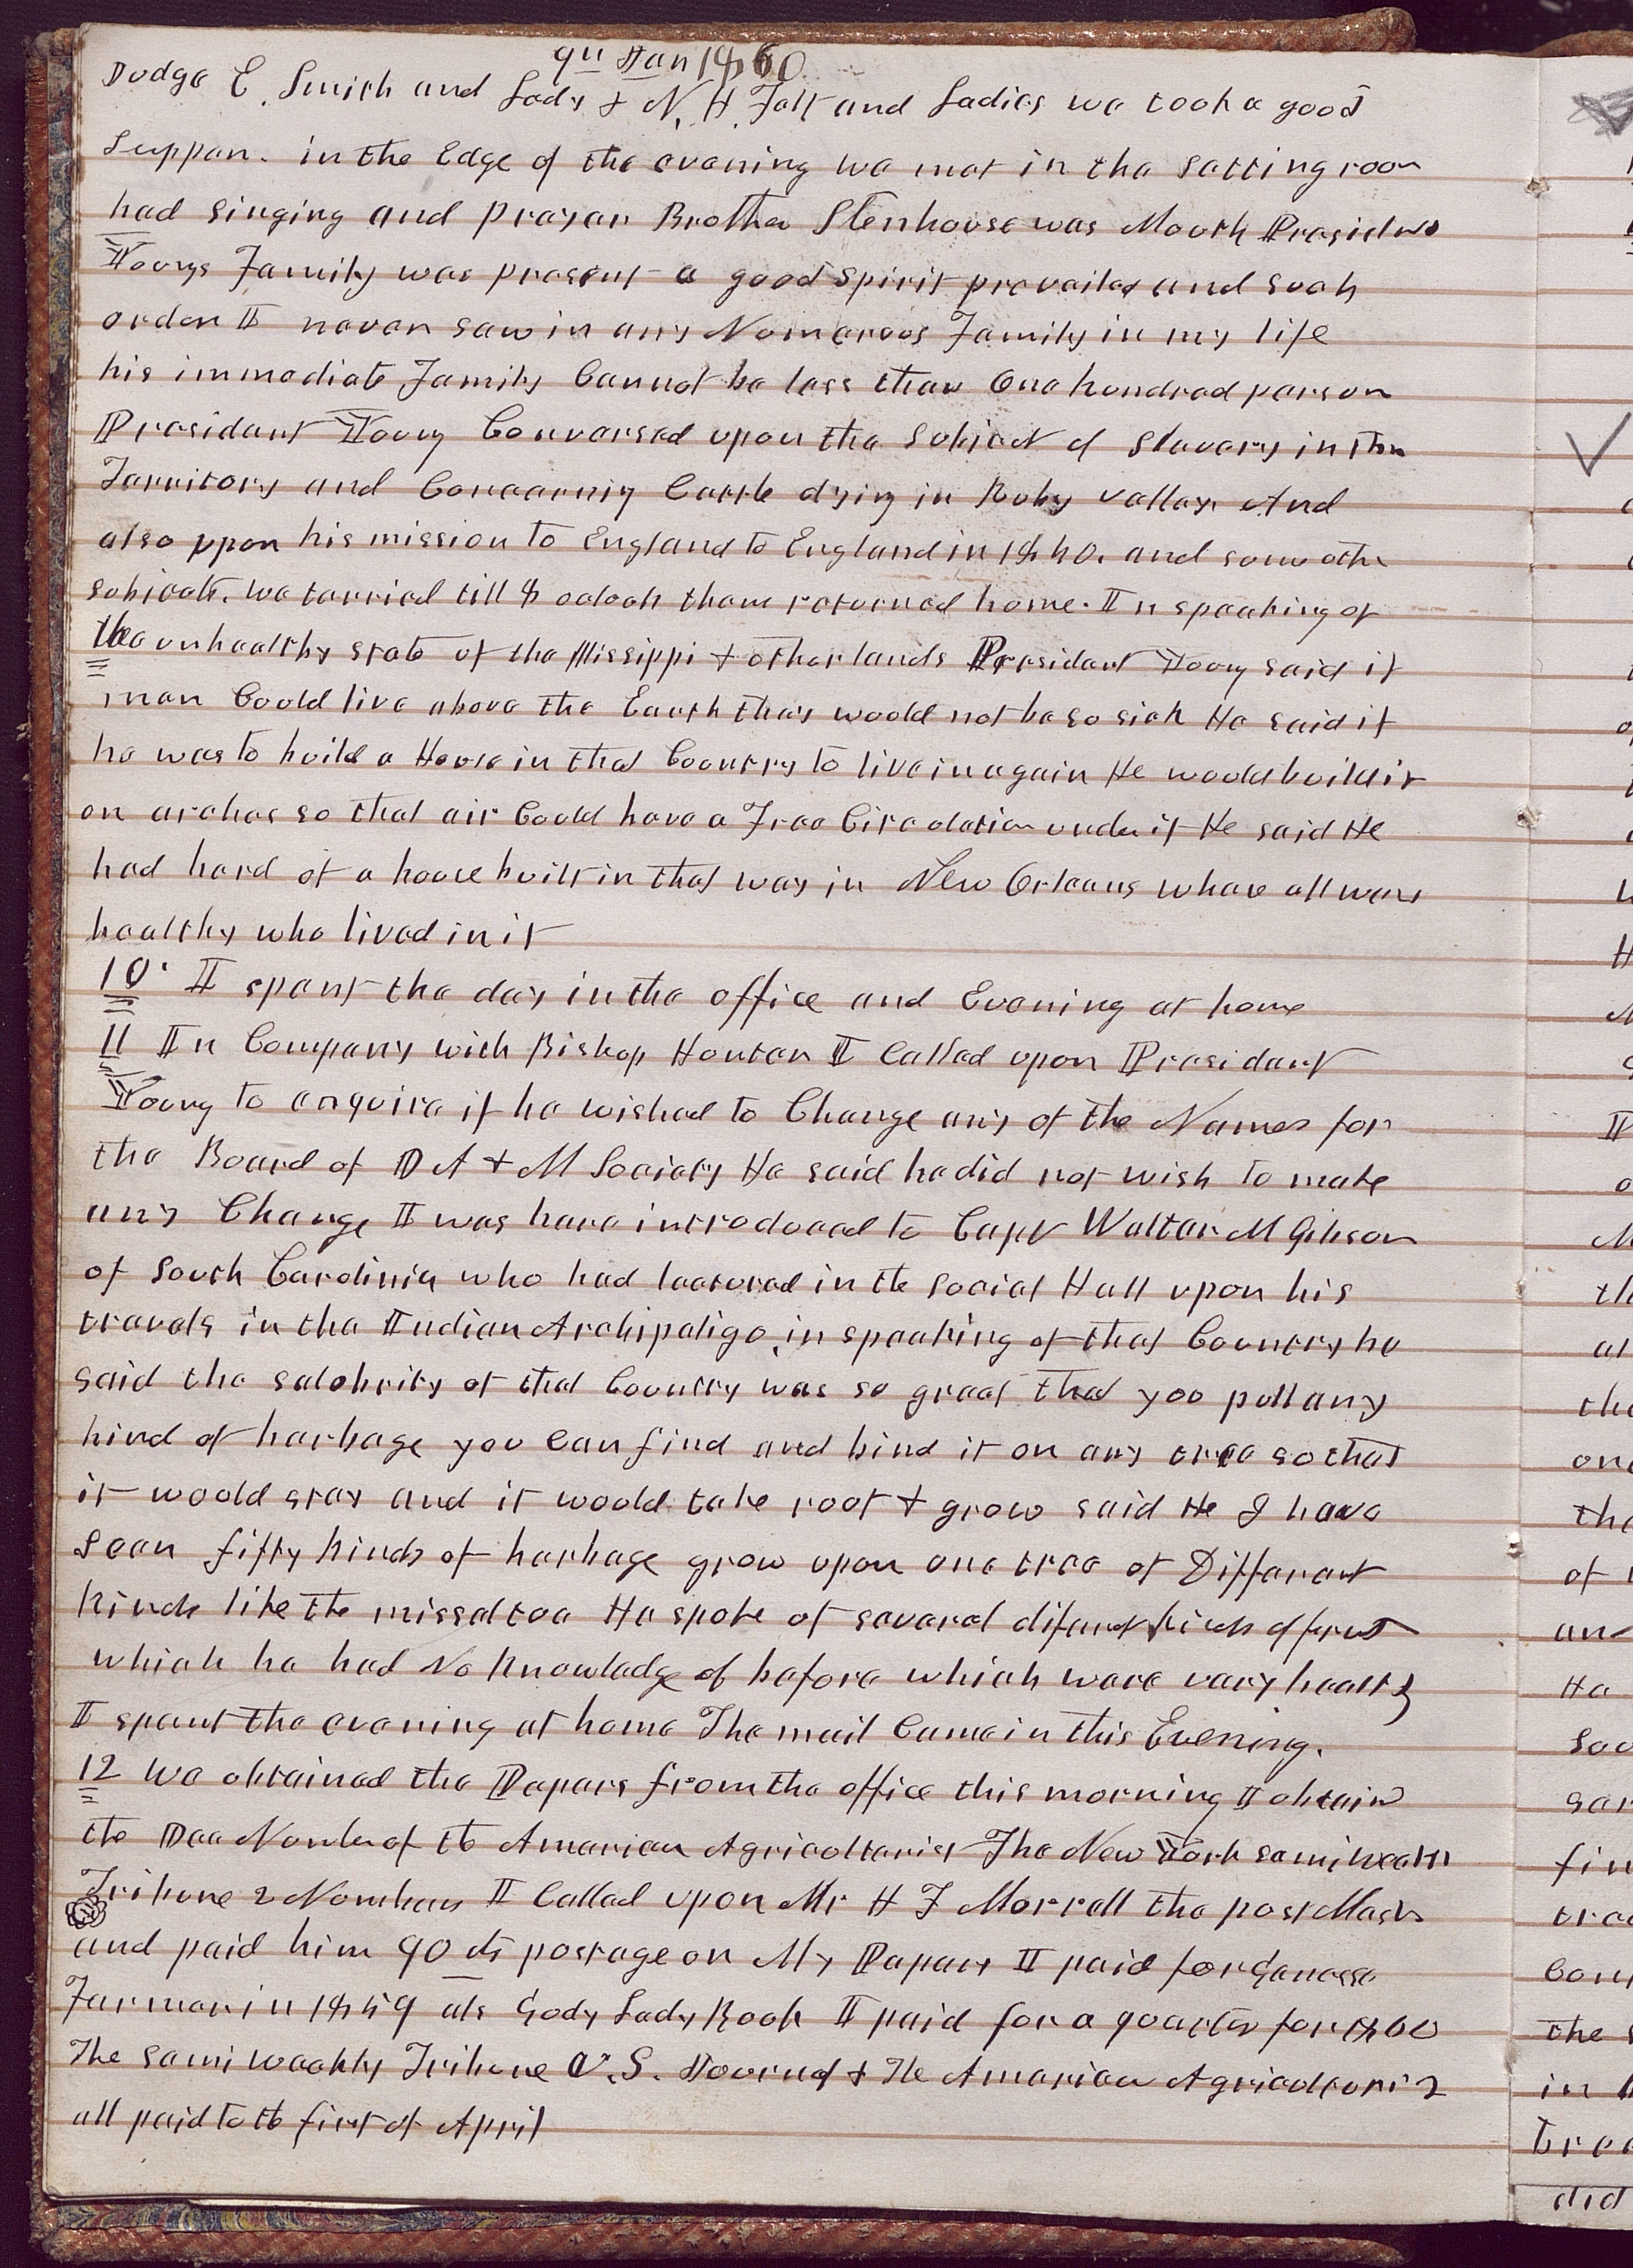 9th Jan 1860
Dodge E. Smith and Lady & N. H. Felt and Ladies we took a good
Supper. in the Edge of the evening we met in the setting room
had singing and prayer Brother Stenhouse was Mouth President
Youngs Family was present a good spirit prevailed and such
order I never saw in any Numerous Family in my life
his immediate Family Cannot be less than One hundred person
President Young Conversed upon the subject of Slavery in this
Territory and Concerning Cattle dying in Ruby valley. And
also upon his mission to England to England in 1840. and some other
subjects. we tarried till 8 oclock then returned home. In speaking of
the unhealthy state of the Missippi & other lands President Young said if
man Could live above the Earth they would not be so sick He said if
he was to build a House in that Country to live in again He would build it
on arches so that air Could have a Free Circulation under it He said He
had herd of a house built in that way in New Orleans whare all were
healthy who lived in it
10. I spent the day in the office and Evening at home
11 In Company with Bishop Hunter I Called upon President
Young to enquire if he wished to Change any of the Names for
the Board of D A & M Society He said he did not wish to make
any Change I was here introduced to Capt Walter M Gibson
of South Carolinia who had lectured in the Social Hall upon his
travels in the Indian Archipeligo, in speaking of that Country he
said the salubrity of that Country was so great that you pull any
kind of harbage you Can find and bind it on any tree so that
it would stay and it would take root & grow said He I have
Seen fifty kinds of harbage grow upon one tree of Different
kinds like the misseltoe He spoke of several difarent kinds of fruit
which he had No knowledge of before which were very healthy
I spent the evening at home The mail Came in this Evening.
12 We obtained the Papers from the office this morning I obtain
the Dec Number of the American Agriculturist The New York semi weekly
Tribune 2 Numbers I Called upon Mr H F Morrell the post Master
and paid him 90 cts postage on My Papers I paid for Genesse
Farmer in 1859 als Gody Lady Book I paid for a quarter for 1860
The Semi Weekly Tribune U.S. Journal & The American Agriculturist
all paid to the first of April